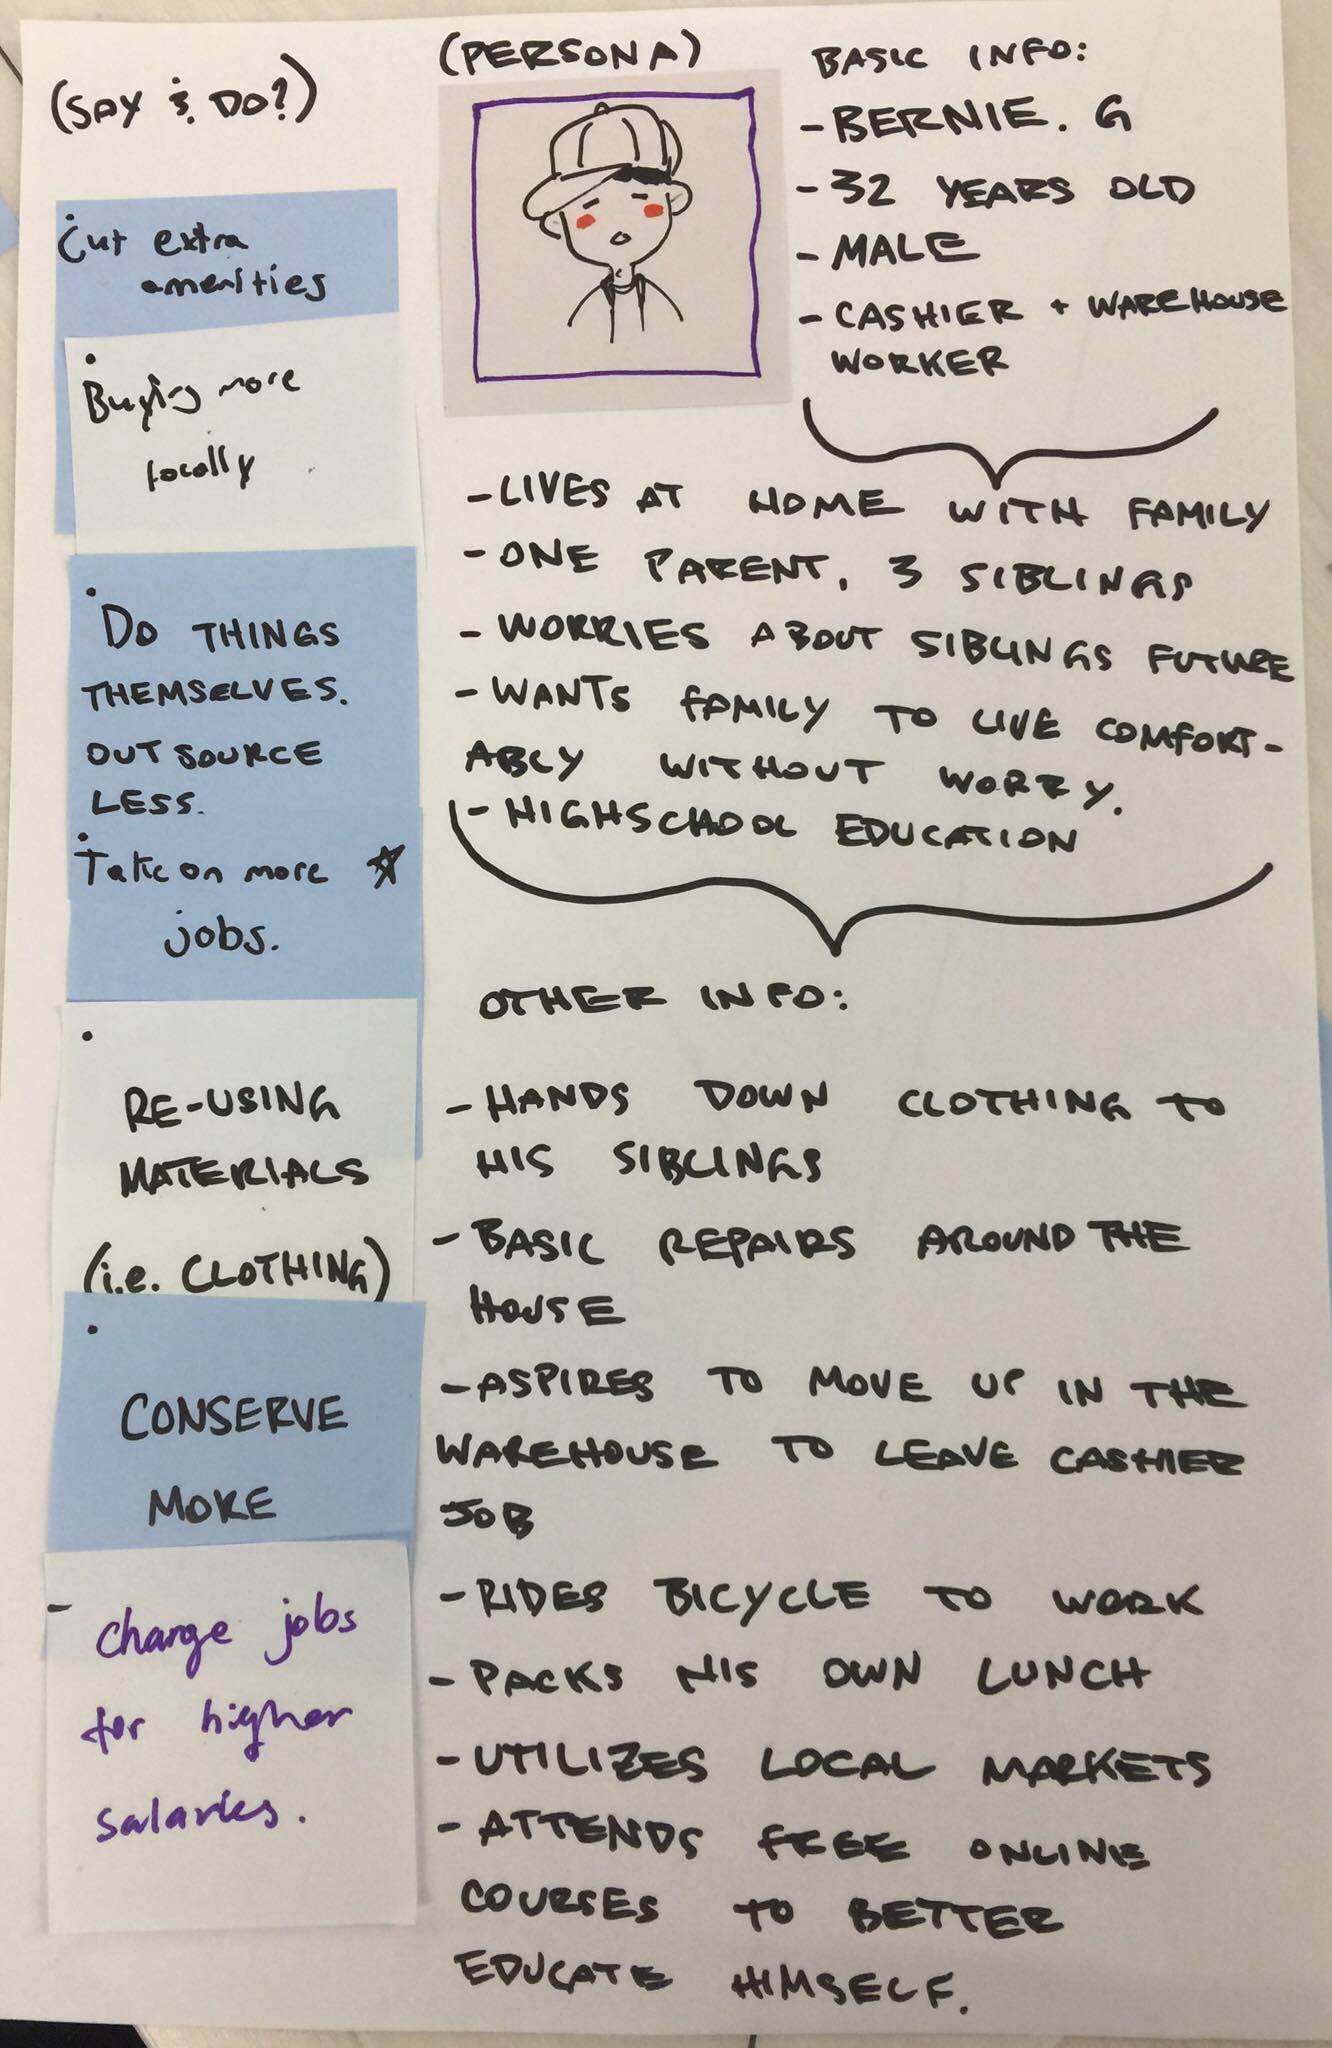 (SAY & DO?)
• Cut extra
amenities
• Buying more
locally
• DO THINGS
THEMSELVES.
OUTSOURCE
LESS.
• Take on more ☆
jobs.
• RE-USING
MATERIALS
(i.e. CLOTHING)
• CONSERVE
MORE
- Change jobs
for higher
salaries.
(PERSONA)
BASIC INFO:
- BERNIE. G
- 32 YEARS OLD
- MALE
- CASHIER + WAREHOUSE
WORKER
- LIVES AT HOME WITH FAMILY
- ONE PARENT, 3 SIBLINGS
- WORRIES ABOUT SIBLINGS FUTURE
- WANTS FAMILY TO LIVE COMFORT-
ABLY WITHOUT WORRY.
- HIGHSCHOOL EDUCATION
OTHER INFO:
- HANDS DOWN CLOTHING TO
HIS SIBLINGS
- BASIC REPAIRS AROUND THE
HOUSE
- ASPIRES TO MOVE UP IN THE
WAREHOUSE TO LEAVE CASHIER
JOB
- RIDES BICYCLE TO WORK
- PACKS HIS OWN LUNCH
- UTILIZES LOCAL MARKETS
- ATTENDS FREE ONLINE
COURSES TO BETTER
EDUCATE HIMSELF.